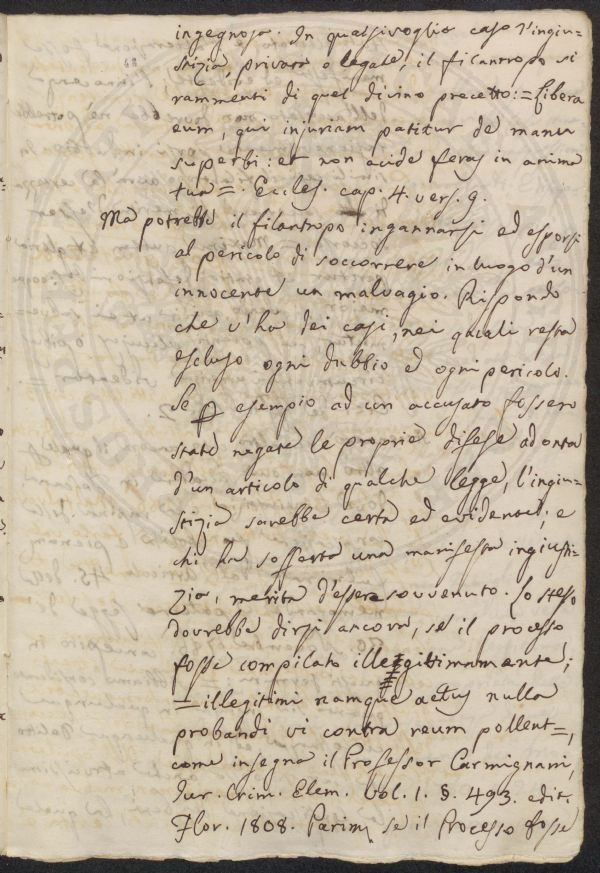 ingegnosa. In qualsivoglia caso d'ingiu=
stizia, privata o legale, il filantropo si
rammenti di quel divino precetto:= Libera
eum, qui injuriam patitur de manu
superbi: et non acide feras in anima
tua=. Eccles. cap. 4. vers. 9.
Ma potrebbe il filantropo ingannarsi ed esporsi
al pericolo di soccorrere in luogo d'un
innocente un malvagio. Rispondo
che v'ha dei casi, nei quali resta
escluso ogni dubbio ed ogni pericolo.
Se p esempio ad un accusato fossero
state negate le proprie difese ad onta
d'un articolo di qualche legge, l'ingiu=
stizia sarebbe certa ed evidente; e
chi ha sofferta una manifesta ingiusti=
zia, merita d'essere sovvenuto. Lo stesso
dovrebbe dirsi ancora, se il processo
fosse compilato illegittimamente;
= illegitimi namque actus nulla
probandi vi contra reum pollent=,
come insegna il Professor Carmignani,
Iur. Crim. Elem. Vol. 1. §. 493. edit.
Flor. 1808. Parim se il Processo fosse